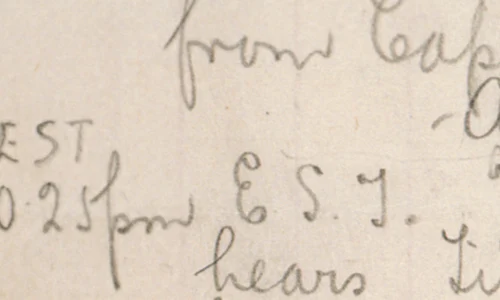 from Cap
EST
0.25pm E.S.T.
hears